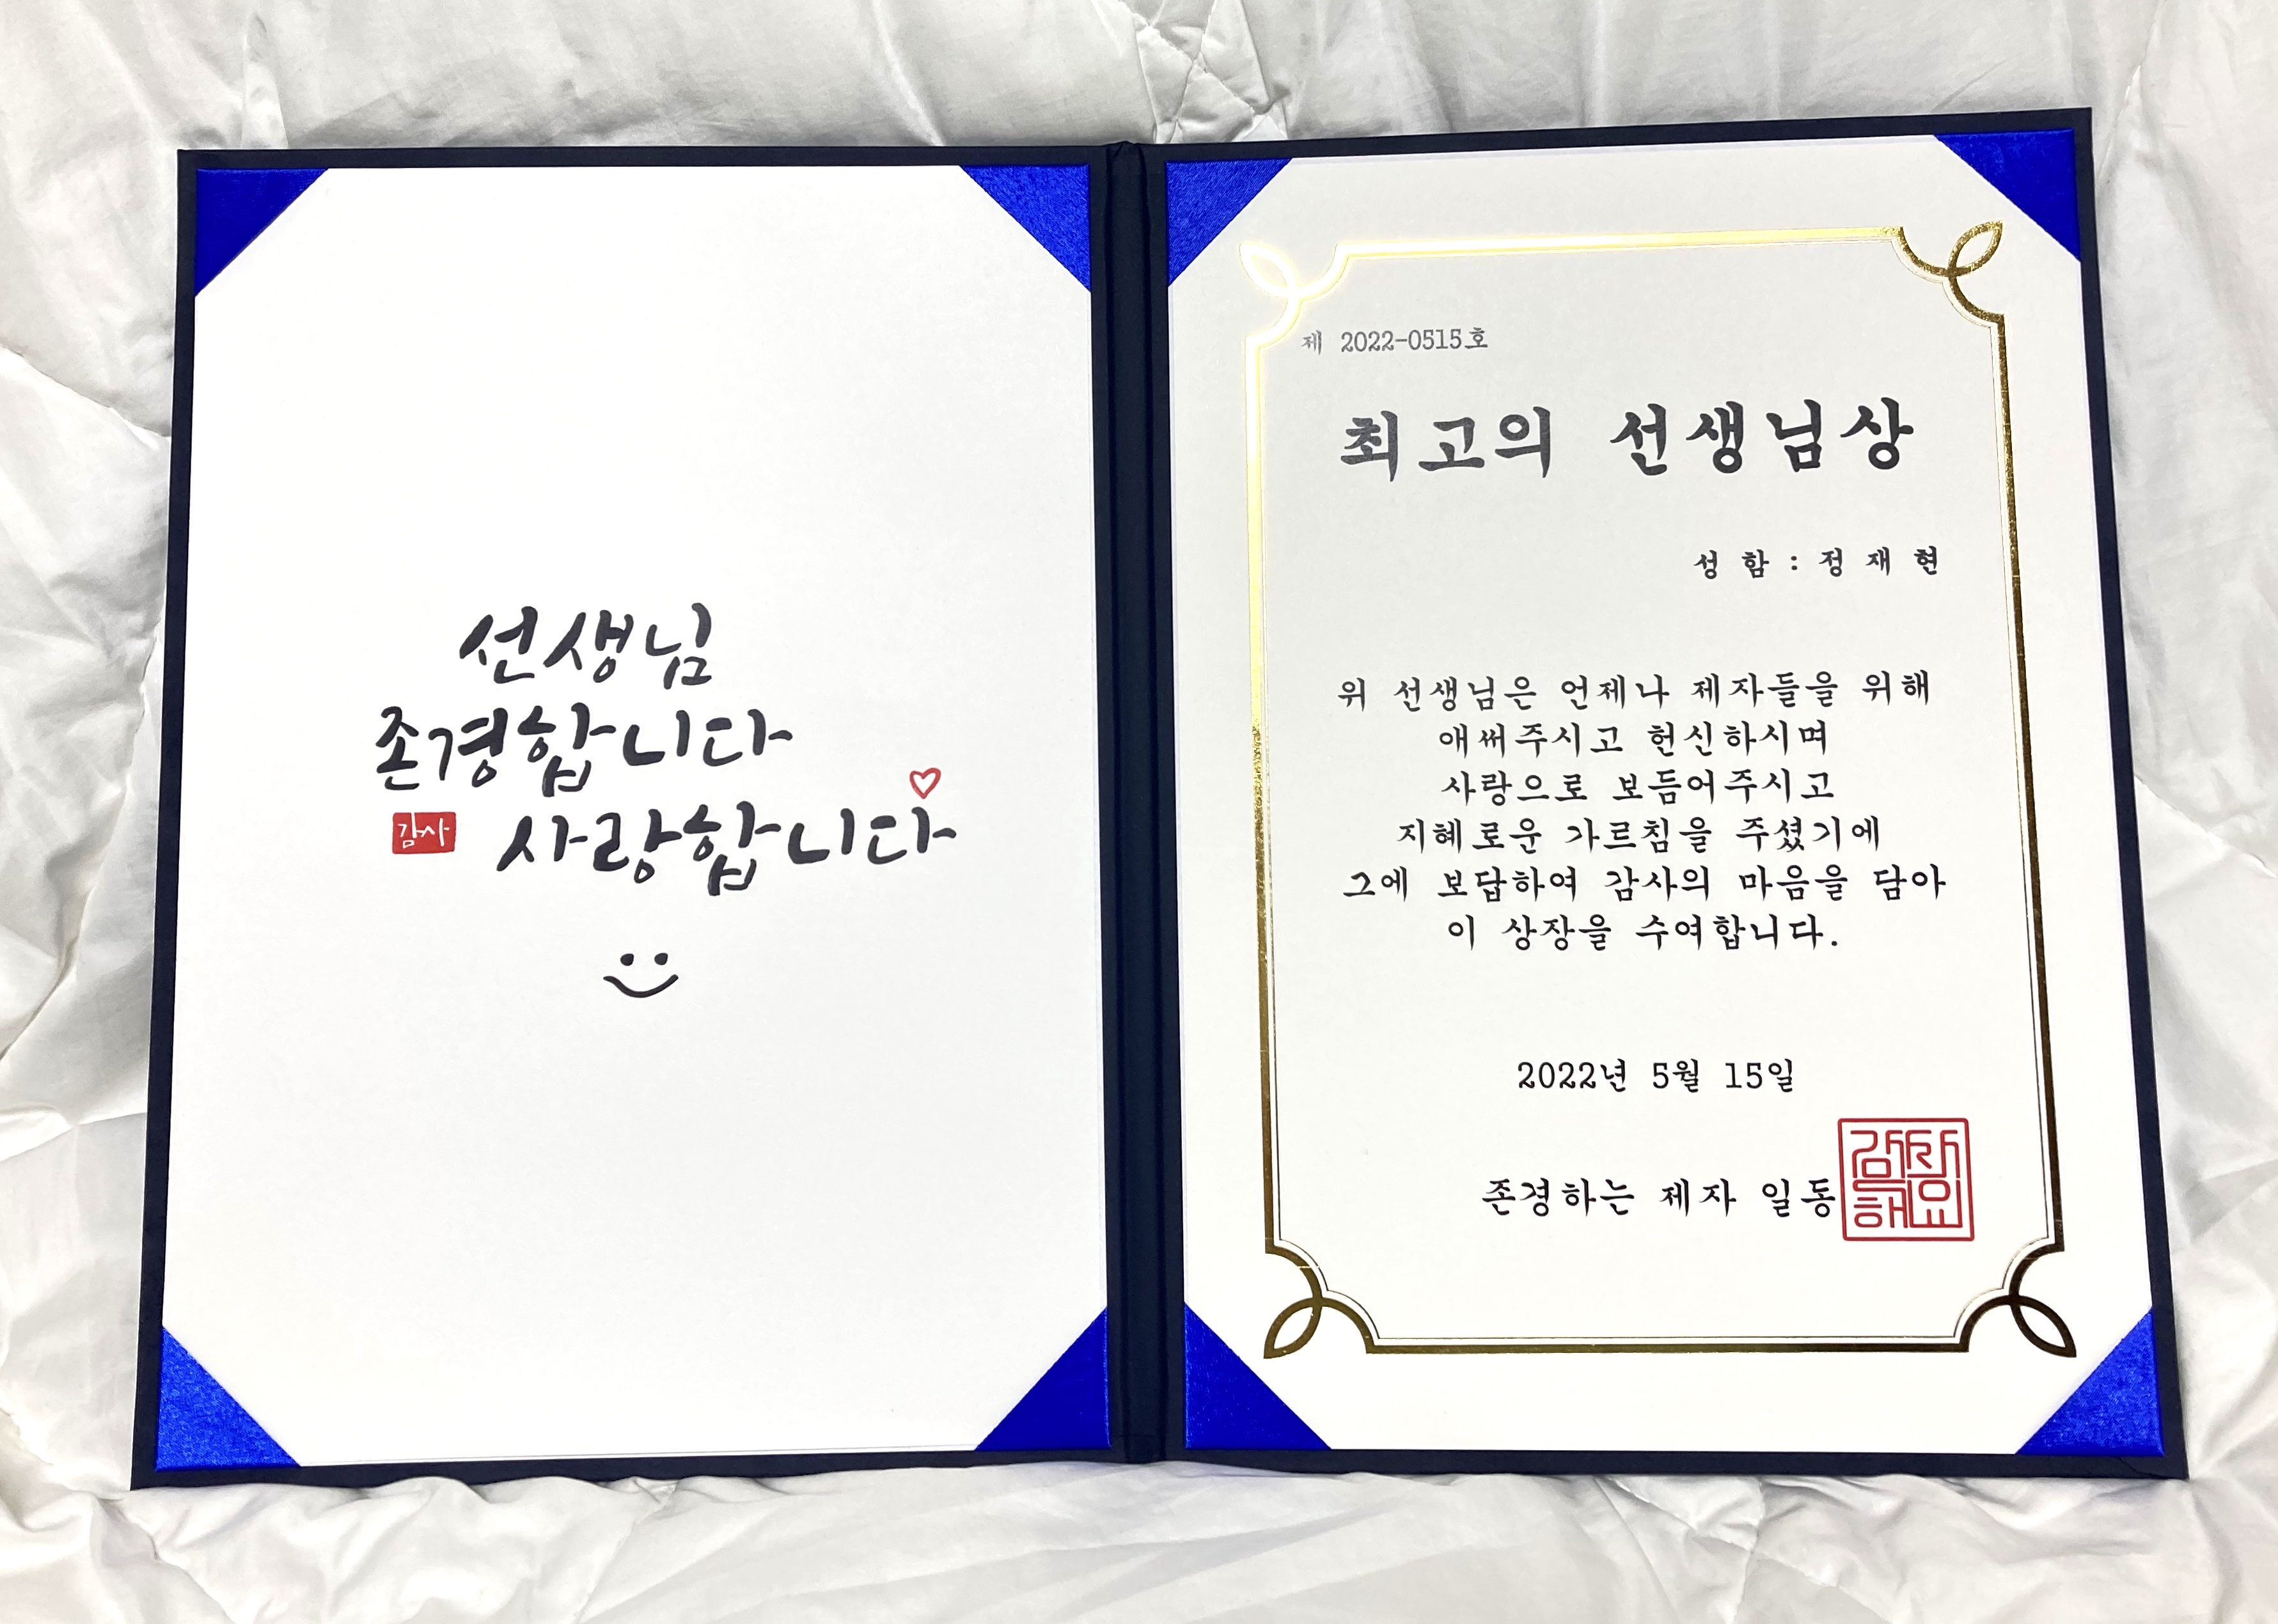 선생님
존경합니다
감사 사랑합니다
제 2022-0515호
최고의 선생님상
성 함 : 정 재 현
위 선생님은 언제나 제자들을 위해
애써주시고 헌신하시며
사랑으로 보듬어주시고
지혜로운 가르침을 주셨기에
그에 보답하여 감사의 마음을 담아
이 상장을 수여합니다.
2022년 5월 15일
존경하는 제자 일동